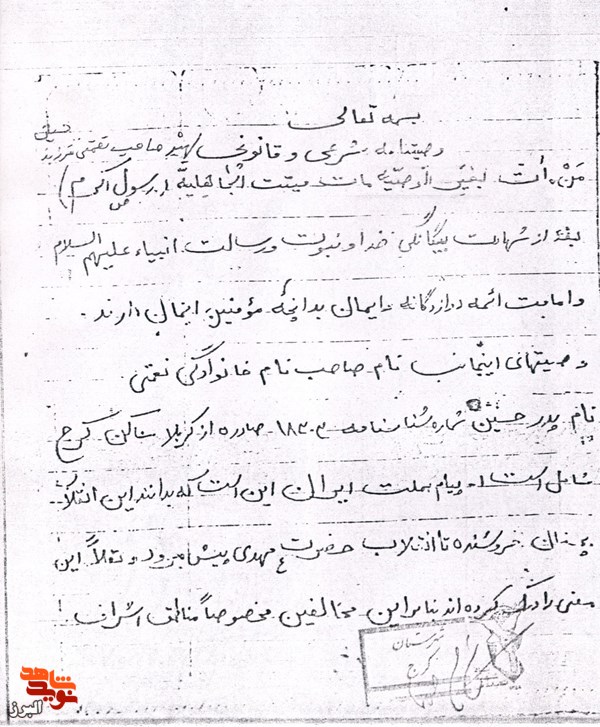 بسمه تعالی
وصیتنامه شرعی و قانونی شهید صاحب نعمتی فرزند حسین
من مات بغیر الوصیة مات میتت الجاهلیة (رسول اکرم ص)
بعد از شهادت بیگانگی خدا و نبوت و رسالت انبیاء علیهم السلام
و امامت ائمه دوازدگانه و ایمان بدانچه مؤمنین ایمان دارند.
وصیتهای اینجانب نام صاحب نام خانوادگی نعمتی
نام پدر حسین شماره شناسنامه ۱۸۳۰۳ صادره از کربلا ساکن کرج
شامل است ۱- پیام بملت ایران این است که بدانند این انقلاب
خروشنده تا انقلاب حضرت مهدی ع پیش میرود و این
معنی را درک کرده اند بنابراین مخالفین مخصوصاً مناطق اشراف
کرج
نوید شاهد
البرز